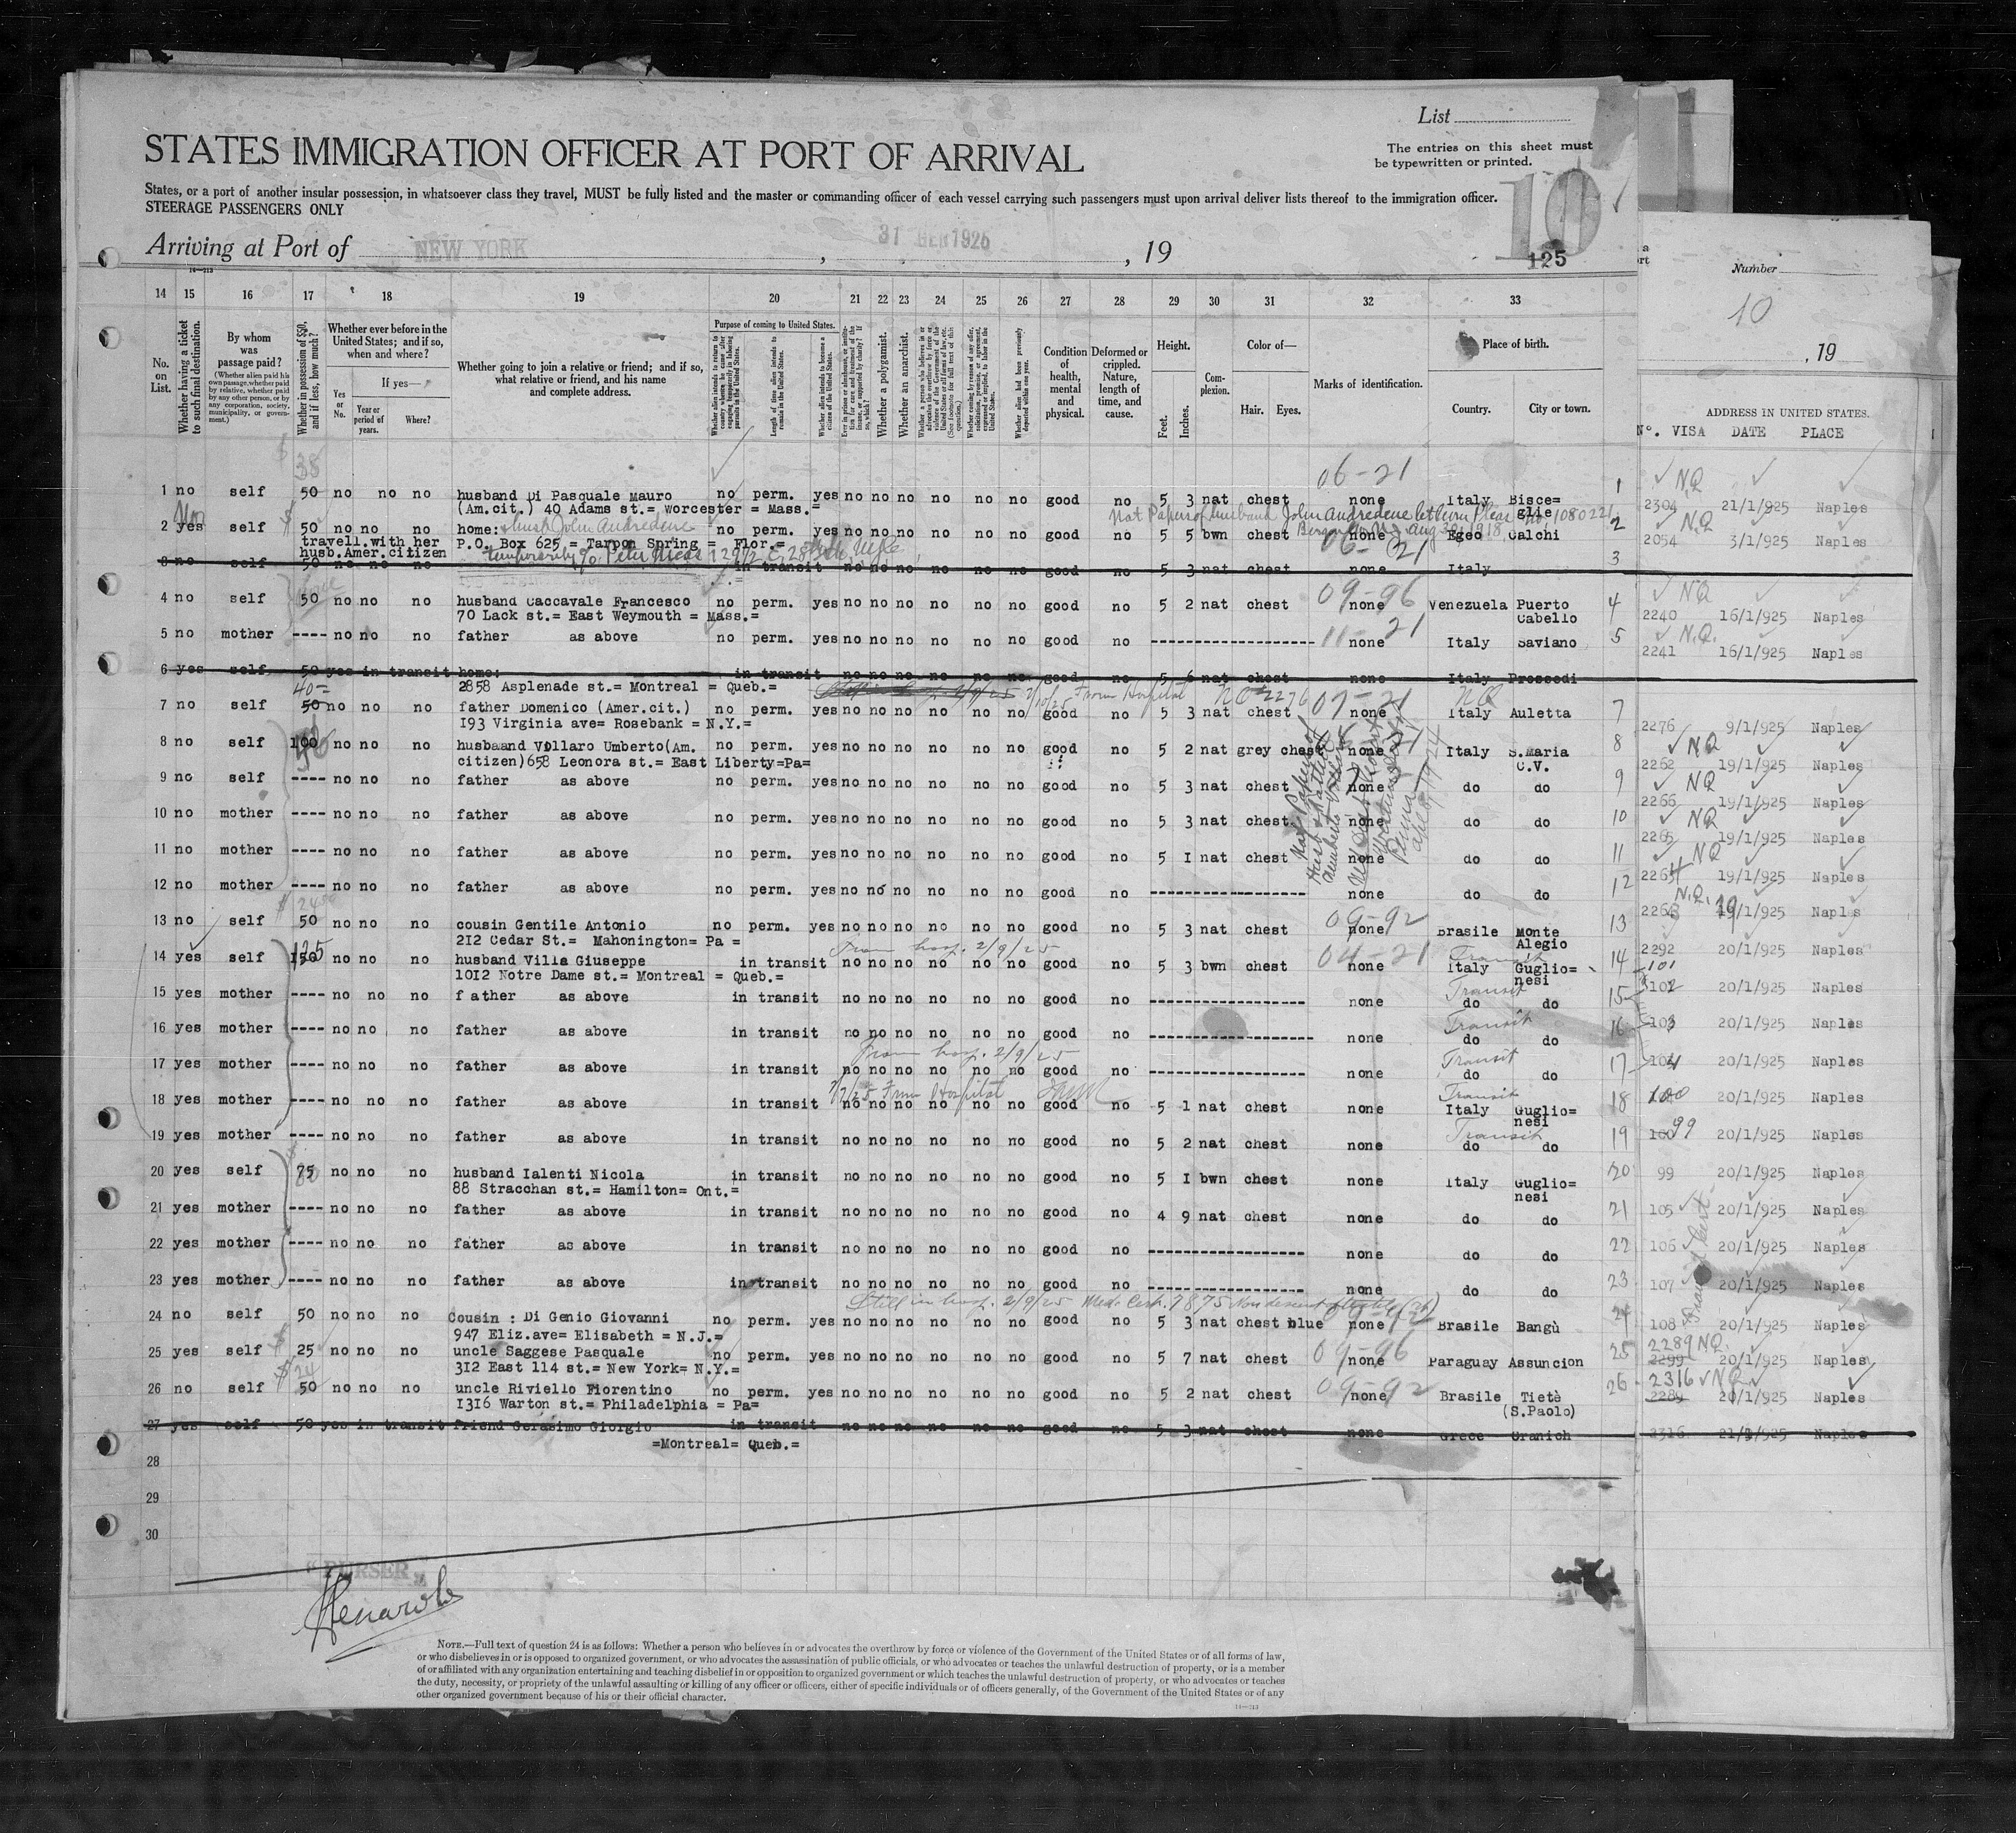 List
STATES IMMIGRATION OFFICER AT PORT OF ARRIVAL
The entries on this sheet must
be typewritten or printed.
States, or a port of another insular possession, in whatsoever class they travel, MUST be fully listed and the master or commanding officer of each vessel carrying such passengers must upon arrival deliver lists thereof to the immigration officer.
STEERAGE PASSENGERS ONLY
10
Arriving at Port of NEW YORK , 31 GEN 1925 , 19
125
Number
10
, 19
14 15 16 17 18 19 20 21 22 23 24 25 26 27 28 29 30 31 32 33
No. on List.
Whether having a ticket to such final destination.
By whom was passage paid?
(Whether alien paid his own passage, whether paid by relative, whether paid by any other person, or by any corporation, society, municipality, or government.)
Whether in possession of $50, and if less, how much?
Whether ever before in the United States; and if so, when and where?
Yes or No.
If yes—
Year or period of years.
Where?
Whether going to join a relative or friend; and if so, what relative or friend, and his name and complete address.
Purpose of coming to United States.
Length of time alien intends to remain in the United States.
Whether alien intends to become a citizen of the United States.
Whether a polygamist.
Whether an anarchist.
Condition of health, mental and physical.
Deformed or crippled. Nature, length of time, and cause.
Height.
Feet. Inches.
Complexion.
Color of—
Hair. Eyes.
Marks of identification.
Place of birth.
Country. City or town.
ADDRESS IN UNITED STATES.
N°. VISA DATE PLACE
06-21
1 no self 50 no no no husband Di Pasquale Mauro no perm. yes no no no no no no good no 5 3 nat chest none Italy Bisce= 1 NQ
(Am.cit.) 40 Adams st.= Worcester = Mass.= glie 2304 21/1/925 Naples
2 yes self 50 no no no home: no perm. yes no no no no no no good no 5 5 bwn chest none Egeo Calchi 2 NQ
travell.with her P.O. Box 625 = Tarpon Spring = Flor.= 2054 3/1/925 Naples
husb.Amer.citizen
3 no self 50 no no no in transit no no no no no no good no 5 3 nat chest none Italy 3
4 no self 50 no no no husband Caccavale Francesco no perm. yes no no no no no no good no 5 2 nat chest 09-96 none Venezuela Puerto 4 NQ
70 Lack st.= East Weymouth = Mass.= Cabello 2240 16/1/925 Naples
5 no mother ---- no no no father as above no perm. yes no no no no no no good no ---- 11-21 none Italy Saviano 5 N.Q.
2241 16/1/925 Naples
6 yes self 50 yes in transit home: in transit no no no no no no good no 5 6 nat chest none Italy Prossedi
2858 Asplenade st.= Montreal = Queb.=
From Hospital
7 no self 50 no no no father Domenico (Amer.cit.) no perm. yes no no no no no no good no 5 3 nat chest none Italy Auletta 7
I93 Virginia ave= Rosebank = N.Y.= 2276 9/1/925 Naples
8 no self 100 no no no husbaand Villaro Umberto(Am. no perm. yes no no no no no no good no 5 2 nat grey chest none Italy S.Maria 8 NQ
citizen)658 Leonora st.= East Liberty=Pa= C.V. 2262 19/1/925 Naples
9 no self ---- no no no father as above no perm. yes no no no no no no good no 5 3 nat chest none do do 9 NQ
2266 19/1/925 Naples
10 no mother ---- no no no father as above no perm. yes no no no no no no good no 5 3 nat chest none do do 10 NQ
2265 19/1/925 Naples
11 no mother ---- no no no father as above no perm. yes no no no no no no good no 5 I nat chest none do do 11 NQ
2264 19/1/925 Naples
12 no mother ---- no no no father as above no perm. yes no no no no no no good no ---- none do do 12 N.Q.
2263 19/1/925 Naples
13 no self 50 no no no cousin Gentile Antonio no perm. yes no no no no no no good no 5 3 nat chest 09-92 none Brasile Monte 13
2I2 Cedar St.= Mahonington= Pa = Alegio 2292 20/1/925 Naples
From hosp. 2/9/25
14 yes self no no no husband Villa Giuseppe in transit no no no no no no good no 5 3 bwn chest 04-21 none Transit Italy Guglio= 14 101
1012 Notre Dame st.= Montreal = Queb.= nesi
15 yes mother ---- no no no father as above in transit no no no no no no good no ---- none Transit do do 15 102 20/1/925 Naples
16 yes mother ---- no no no father as above in transit no no no no no no good no ---- none Transit do do 16 103 20/1/925 Naples
From hosp. 2/9/25
17 yes mother ---- no no no father as above in transit no no no no no no good no ---- none Transit do do 17 104 20/1/925 Naples
From Hospital
18 yes mother ---- no no no father as above in transit no no no no no no good no 5 1 nat chest none Transit Italy Guglio= 18 100 20/1/925 Naples
nesi
19 yes mother ---- no no no father as above in transit no no no no no no good no 5 2 nat chest none Transit do do 19 99 20/1/925 Naples
20 yes self no no no husband Ialenti Nicola in transit no no no no no no good no 5 I bwn chest none Italy Guglio= 20 99 20/1/925 Naples
88 Stracchan st.= Hamilton= Ont.= nesi
21 yes mother ---- no no no father as above in transit no no no no no no good no 4 9 nat chest none do do 21 105 20/1/925 Naples
22 yes mother ---- no no no father as above in transit no no no no no no good no ---- none do do 22 106 20/1/925 Naples
23 yes mother ---- no no no father as above in transit no no no no no no good no ---- none do do 23 107 20/1/925 Naples
Still in hosp. 2/9/25 Med. Cert.
24 no self 50 no no no Cousin : Di Genio Giovanni no perm. yes no no no no no no good no 5 3 nat chest blue none Brasile Bangù 24 108 20/1/925 Naples
947 Eliz.ave= Elisabeth = N.J.=
25 yes self 25 no no no uncle Saggese Pasquale no perm. yes no no no no no no good no 5 7 nat chest 09-96 none Paraguay Assuncion 25 2289 NQ
3I2 East II4 st.= New York= N.Y.= 2299 20/1/925 Naples
26 no self 50 no no no uncle Riviello Fiorentino no perm. yes no no no no no no good no 5 2 nat chest 09-92 none Brasile Tietè 26 2316 NQ
I3I6 Warton st.= Philadelphia = Pa= (S.Paolo) 2289 20/1/925 Naples
27 yes self 50 yes in transit friend Gerasimo Giorgio in transit no no no no no no good no 5 3 nat chest none Grece Uranich 2316 21/1/925 Naples
=Montreal= Queb.=
28
29
30
"PURSER"
NOTE.—Full text of question 24 is as follows: Whether a person who believes in or advocates the overthrow by force or violence of the Government of the United States or of all forms of law,
or who disbelieves in or is opposed to organized government, or who advocates the assassination of public officials, or who advocates or teaches the unlawful destruction of property, or is a member
of or affiliated with any organization entertaining and teaching disbelief in or opposition to organized government or which teaches the unlawful destruction of property, or who advocates or teaches
the duty, necessity, or propriety of the unlawful assaulting or killing of any officer or officers, either of specific individuals or of officers generally, of the Government of the United States or of any
other organized government because of his or their official character.
14—213